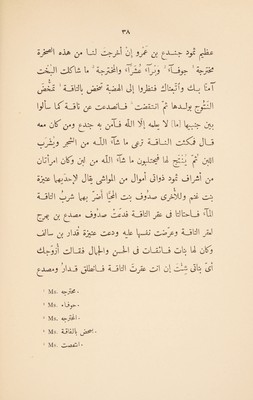 ٣٨
عظيم ثمود جندع بن عمرو إن أخرجت لنا من هذه الصخرة
مخترجة ¹ جوفاء ² وبراء عشراء والمخترجة ³ ما شاكلت البخت
آمنا بك واتبعناك فنظروا إلى الهضبة تمخض بالناقة ⁴ تمخض
النتوج بولدها ثم انتفضت ⁵ فانصدعت عن ناقة كما سألوا
بين جنبيها [ما] لا يعلمه إلا الله فآمن به جندع ومن كان معه
قال فمكثت الناقة ترعى ما شاء الله من الشجر وتشرب
اللبن ثم ينتج لها فيحتلبون ما شاء الله من لبن وكان امرأتان
من أشراف ثمود ذواتى أموال من المواشى يقال لإحداهما عنيزة
بنت غنم وللأخرى صدوف بنت المحيا أضر بهما شرب الناقة
الماء فاحتالتا فى عقر الناقة فدعت صدوف مصدع بن مهرج
لعقر الناقة وعرضت نفسها عليه ودعت عنيزة قدار بن سالف
وكان لها بنات فائقات فى الحسن والجمال فقالت أزوجك
أى بناتى شئت إن انت عقرت الناقة فانطلق قدار ومصدع
¹ Ms. محترجه.
² Ms. حوفاء.
³ Ms. المحترجه.
⁴ Ms. بالفاقة.
⁵ Ms. انتفصت.